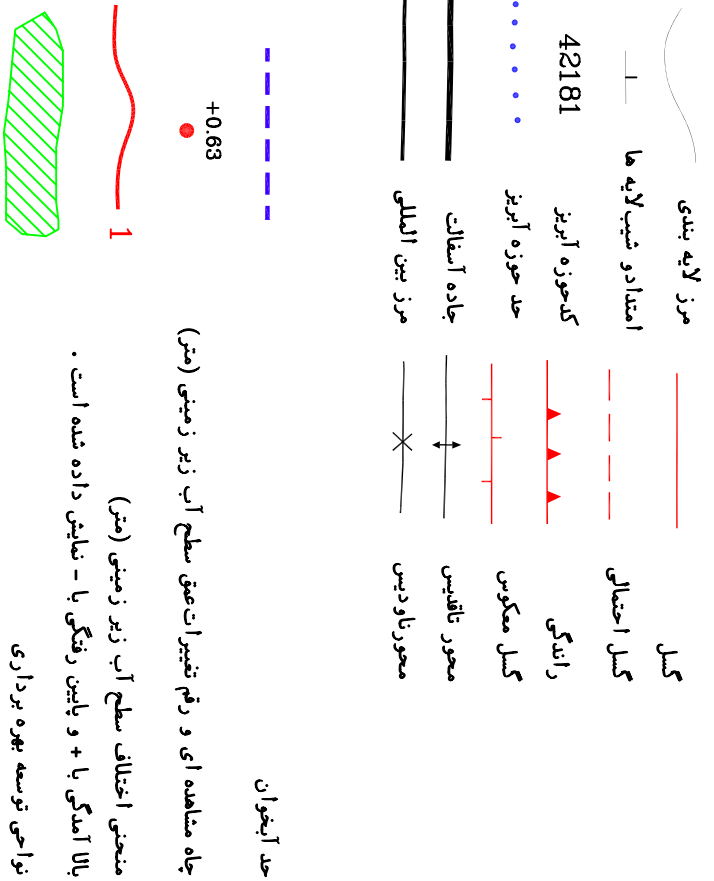 مرز لایه بندی
امتداد و شیب لایه ها
42181
کدحوزه آبریز
حد حوزه آبریز
جاده آسفالت
مرز بین المللی
گسل
گسل احتمالی
راندگی
گسل معکوس
محور تاقدیس
محورناودیس
حد آبخوان
+0.63
چاه مشاهده ای و رقم تغییرات عمق سطح آب زیر زمینی (متر)
1
منحنی اختلاف سطح آب زیر زمینی (متر)
بالا آمدگی با + و پایین رفتگی با - نمایش داده شده است .
نواحی توسعه بهره برداری